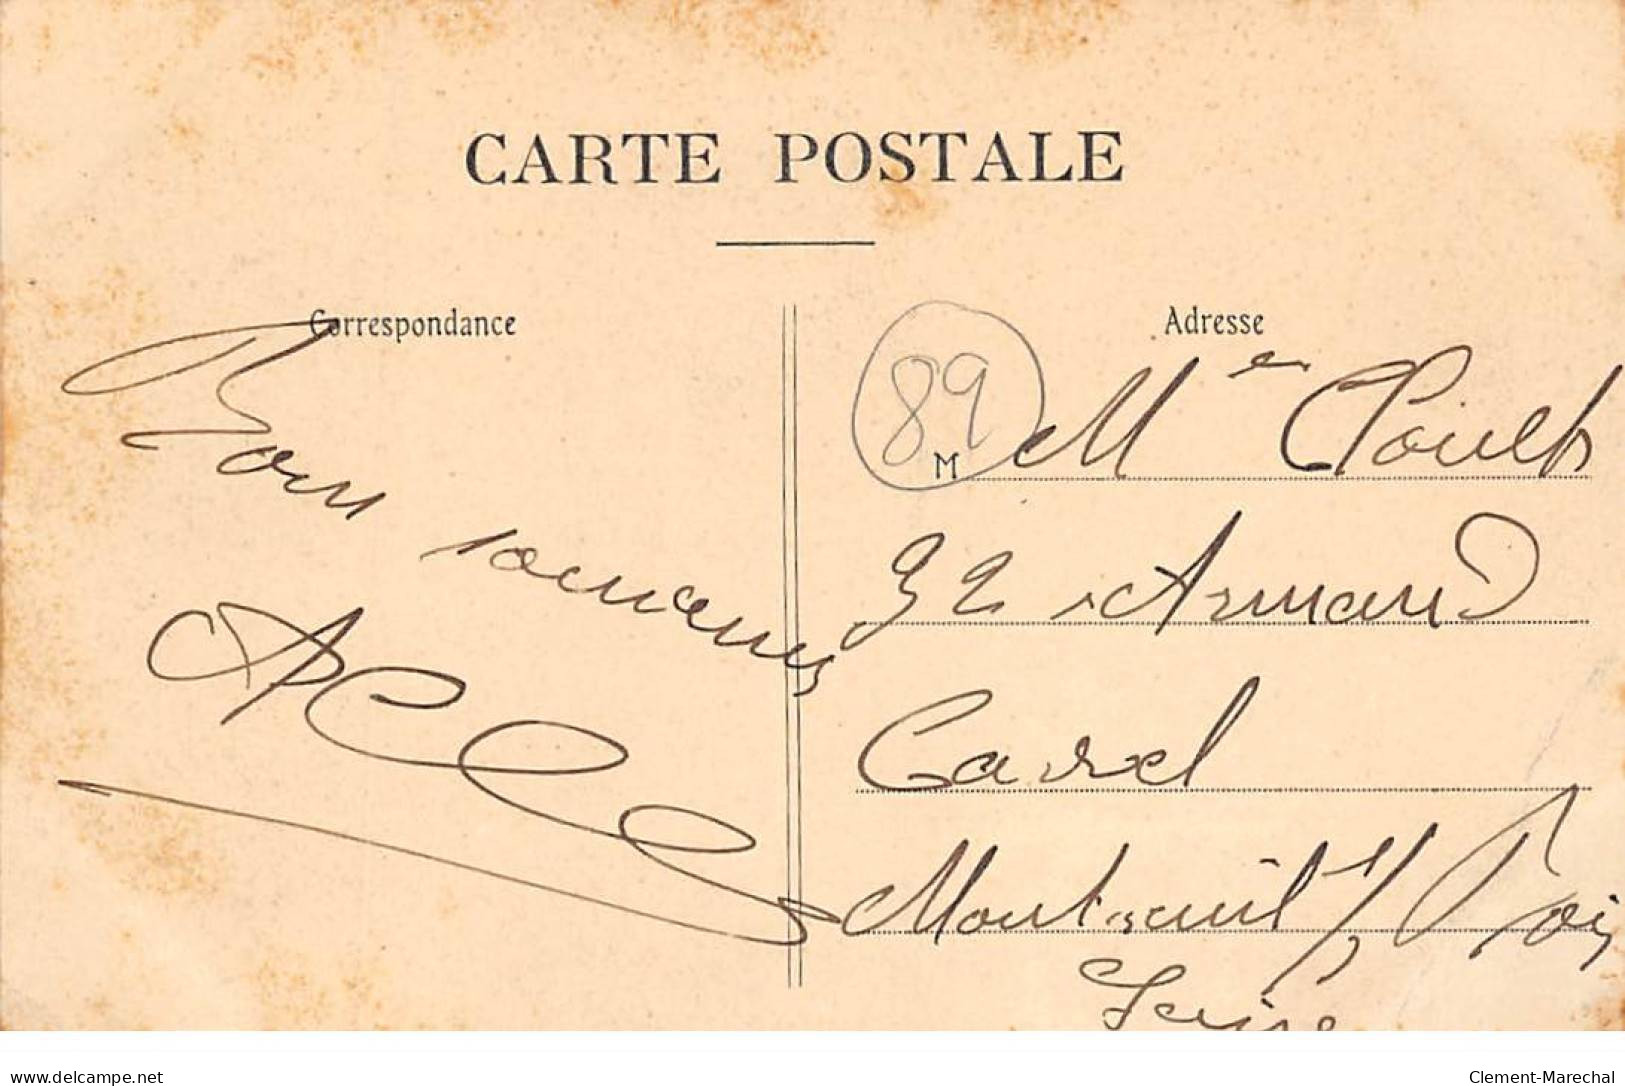 CARTE POSTALE
Correspondance
Bon souvenir
Adresse
89
M
32 Armand
Carrel
Montreuil s/ Bois
Seine
delcampe.net
Clement-Marechal